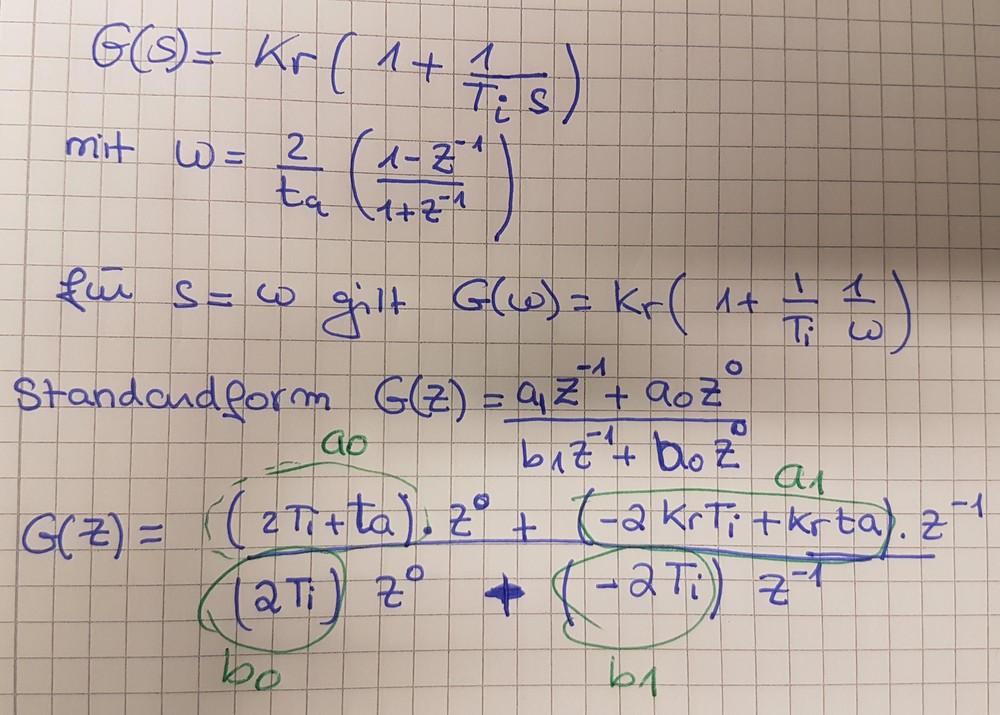 G(s) = Kr ( 1 + 1/(Ti s) )
mit ω = 2/ta ( (1 - z⁻¹)/(1 + z⁻¹) )
für s = ω gilt G(ω) = Kr ( 1 + 1/Ti 1/ω )
Standardform G(z) = (a₁z⁻¹ + a₀z⁰)/(b₁z⁻¹ + b₀z⁰)
a0 a1
G(z) = ((2Ti + ta) · z⁰ + (-2KrTi + Krta) · z⁻¹)/((2Ti) z⁰ + (-2Ti) z⁻¹)
b0 b1